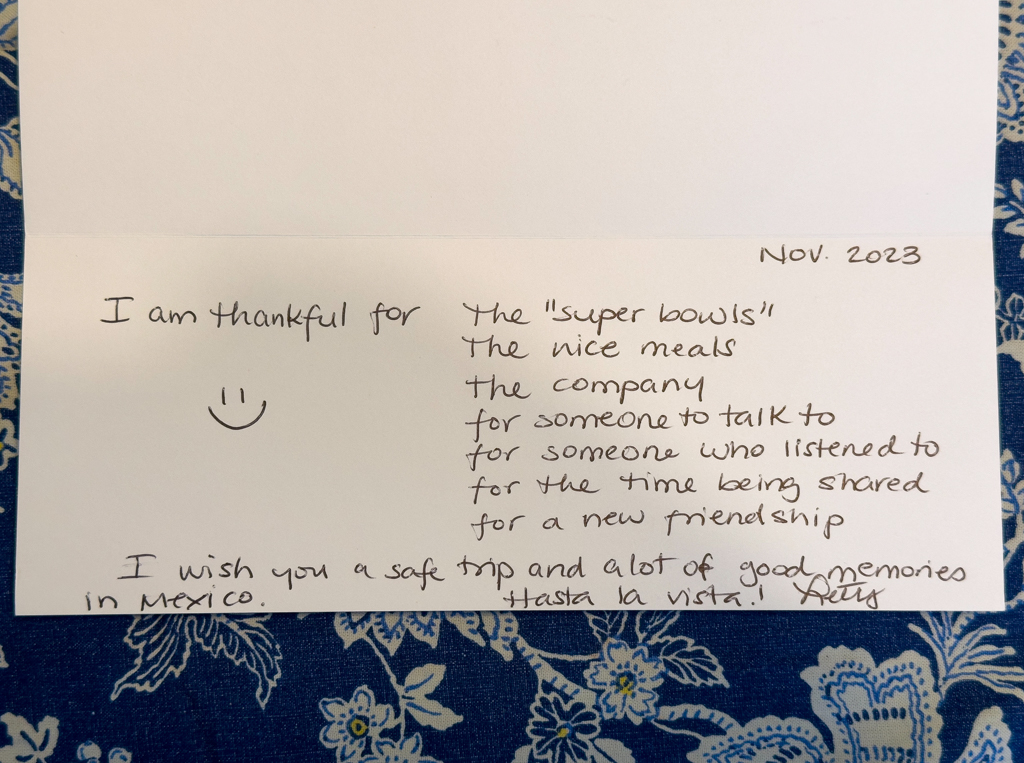 Nov. 2023
I am thankful for The "super bowls"
The nice meals
the company
for someone to talk to
for someone who listened to
for the time being shared
for a new friendship
I wish you a safe trip and a lot of good memories
in Mexico. Hasta la vista!